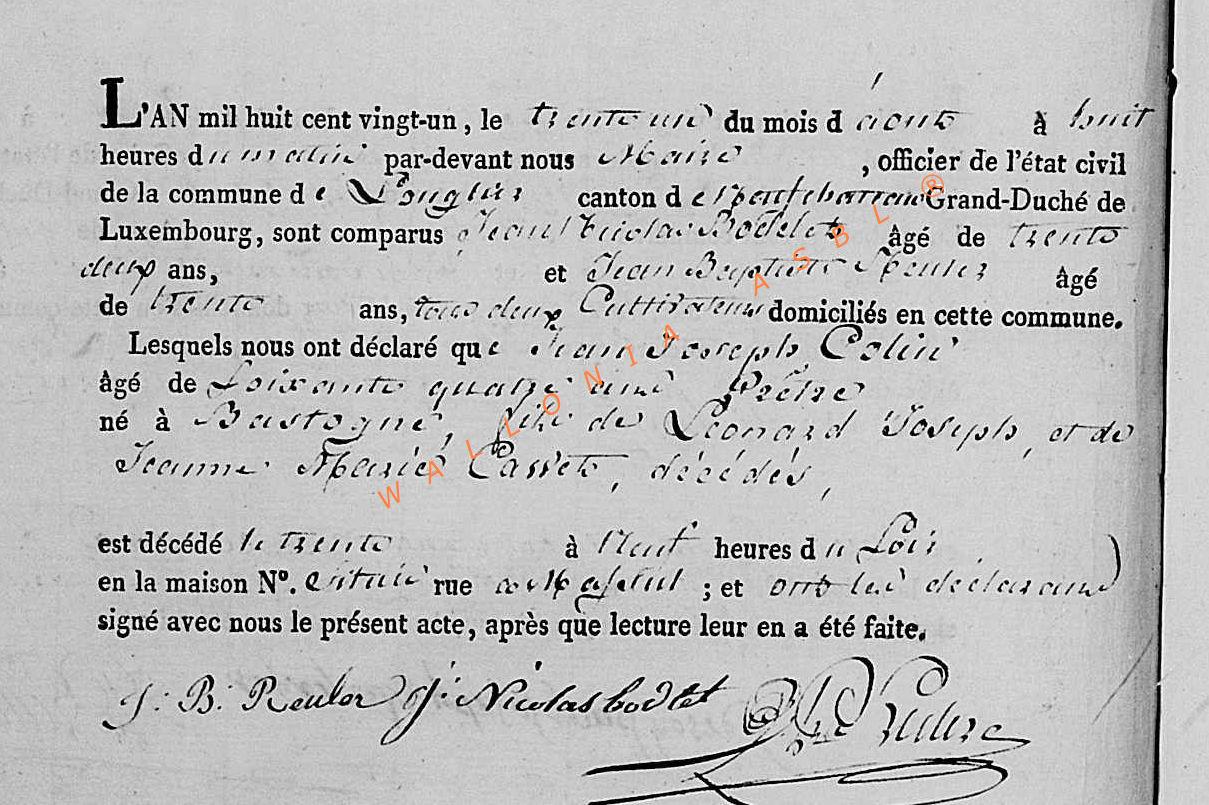 L'AN mil huit cent vingt-un, le trente un du mois d'août à huit
heures du matin par-devant nous Maire, officier de l'état civil
de la commune de Longlier canton de Neufchateau Grand-Duché de
Luxembourg, sont comparus Jean Nicolas Bodelet âgé de trente
deux ans, et Jean Baptiste Reuler âgé
de trente ans, tous deux Cultivateurs domiciliés en cette commune.
Lesquels nous ont déclaré que Jean Joseph Colin
âgé de Soixante quatre ans Prêtre
né à Bastogne, fils de Léonard Joseph, et de
Jeanne Marie Casset, décédés,
est décédé le trente à Neuf heures du Soir
en la maison N°. située rue à Massul ; et ont les déclarans
signé avec nous le présent acte, après que lecture leur en a été faite.
J: B: Reuler J: Nicolas bodlet
WALLONIA ASBL ®